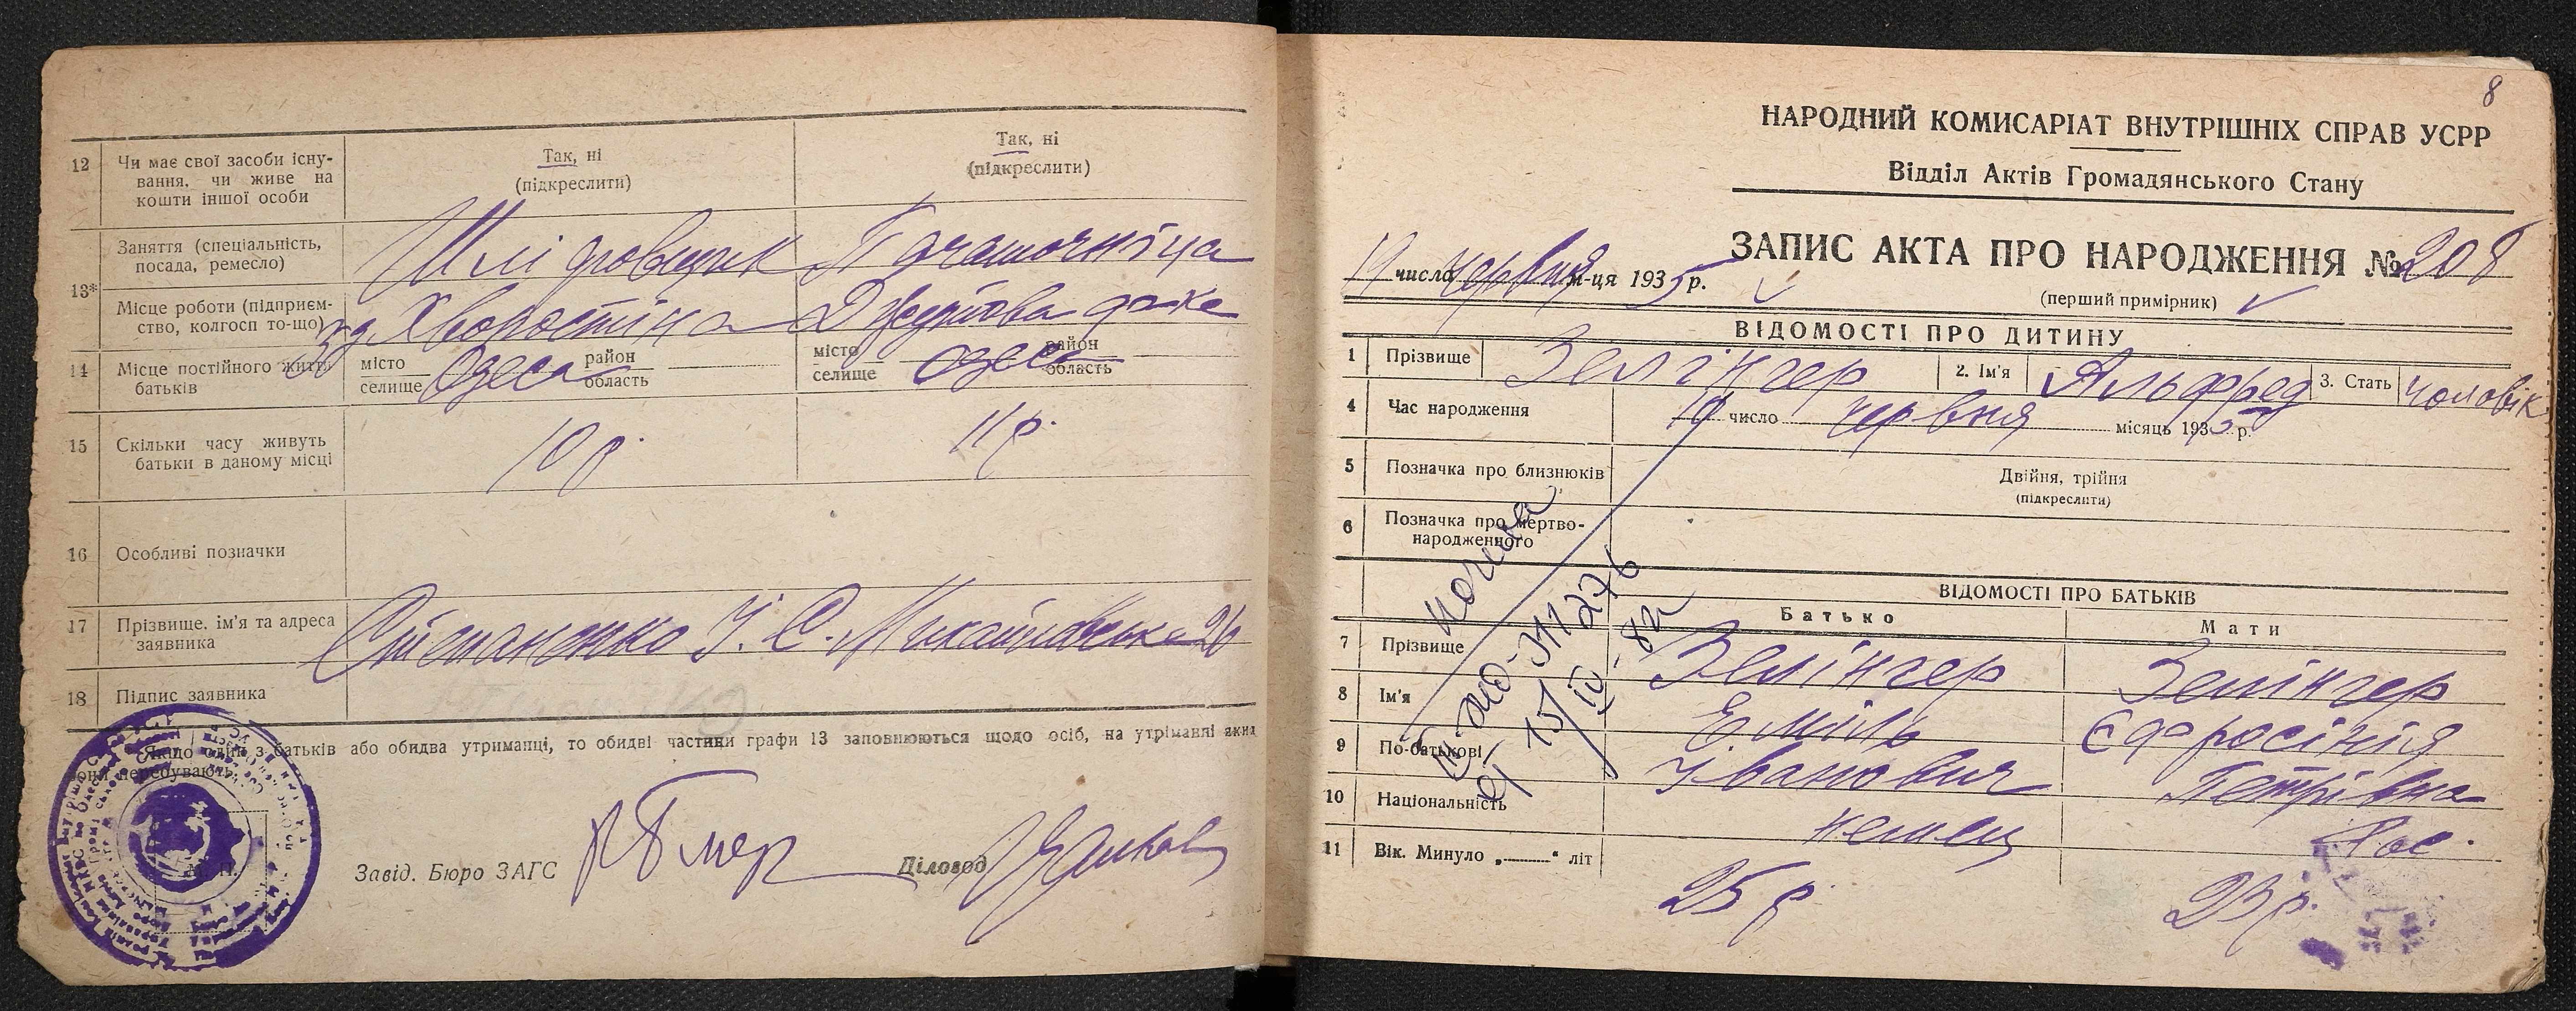 12 Чи має свої засоби існу-
вання, чи живе на
кошти іншої особи
Так, ні
(підкреслити)
Так, ні
(підкреслити)
13*
Заняття (спеціальність,
посада, ремесло)
Шліфовщик
Пачешочніца
Місце роботи (підприєм-
ство, колгосп то-що)
зд Хворостіна
Джутова фабке
14 Місце постійного життя
батьків
місто
селище
Одеса
район
область
місто
селище
Одеса
район
область
15 Скільки часу живуть
батьки в даному місці
10 р.
11 р.
16 Особливі позначки
17 Прізвище, ім'я та адреса
заявника
Степаненко І. С. Михайлівська 26
18 Підпис заявника
* Якщо один з батьків або обидва утриманці, то обидві частини графи 13 заповнюються щодо осіб, на утриманні яких
вони перебувають.
М. П.
Завід. Бюро ЗАГС
Діловод
8
НАРОДНИЙ КОМИСАРІАТ ВНУТРІШНІХ СПРАВ УСРР
Відділ Актів Громадянського Стану
ЗАПИС АКТА ПРО НАРОДЖЕННЯ № 208
19 числа червня м-ця 1935 р.
(перший примірник)
ВІДОМОСТІ ПРО ДИТИНУ
1 Прізвище Зелінгер 2. Ім'я Альфред 3. Стать чоловік
4 Час народження 10 число червня місяць 1935 р.
5 Позначка про близнюків
Двійня, трійня
(підкреслити)
6 Позначка про мертво-
народженного
копия
276
от 15/IV-82
ВІДОМОСТІ ПРО БАТЬКІВ
Батько
Мати
7 Прізвище Зелінгер Зелінгер
8 Ім'я Еміль Єфросінія
9 По-батькові Іванович Петрівна
10 Національність немец Рос.
11 Вік. Минуло „......“ літ 25 р. 23 р.